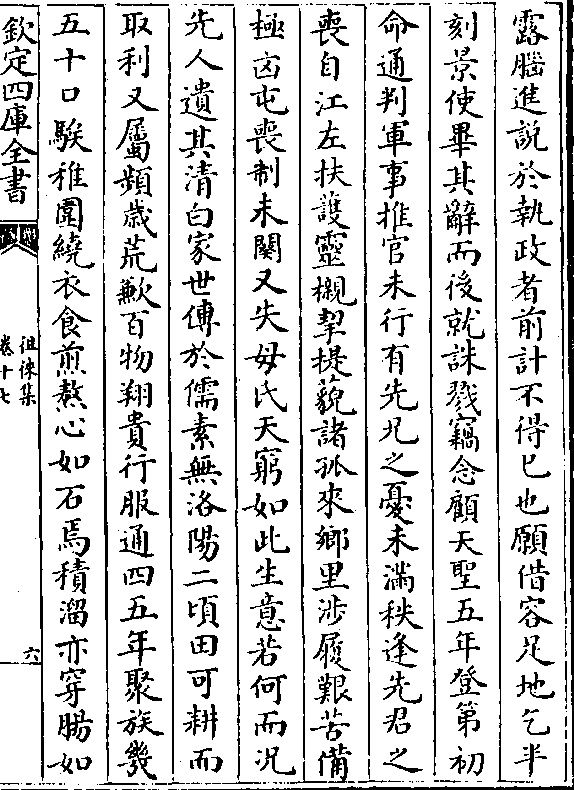 露腦進説於執政者前計不得已也願借容足地乞半
刻景使畢其辭而後就誅戮竊念顧天聖五年登第初
命通判軍事推官未行有先兄之憂未滿秩逢先君之
喪自江左扶護靈櫬挈提藐諸孤來鄉里涉履艱苦備
極凶屯喪制未闋又失母氏天窮如此生意若何而況
先人遺其清白家世傳於儒素無洛陽二頃田可耕而
取利又屬頻歲荒歉百物翔貴行服通四五年聚族幾
五十口騃稚圍繞衣食煎熬心如石焉積溜亦穿腸如
欽定四庫全書
徂徠集
卷十七
六